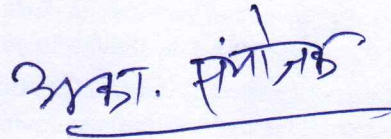 अका. संयोजक